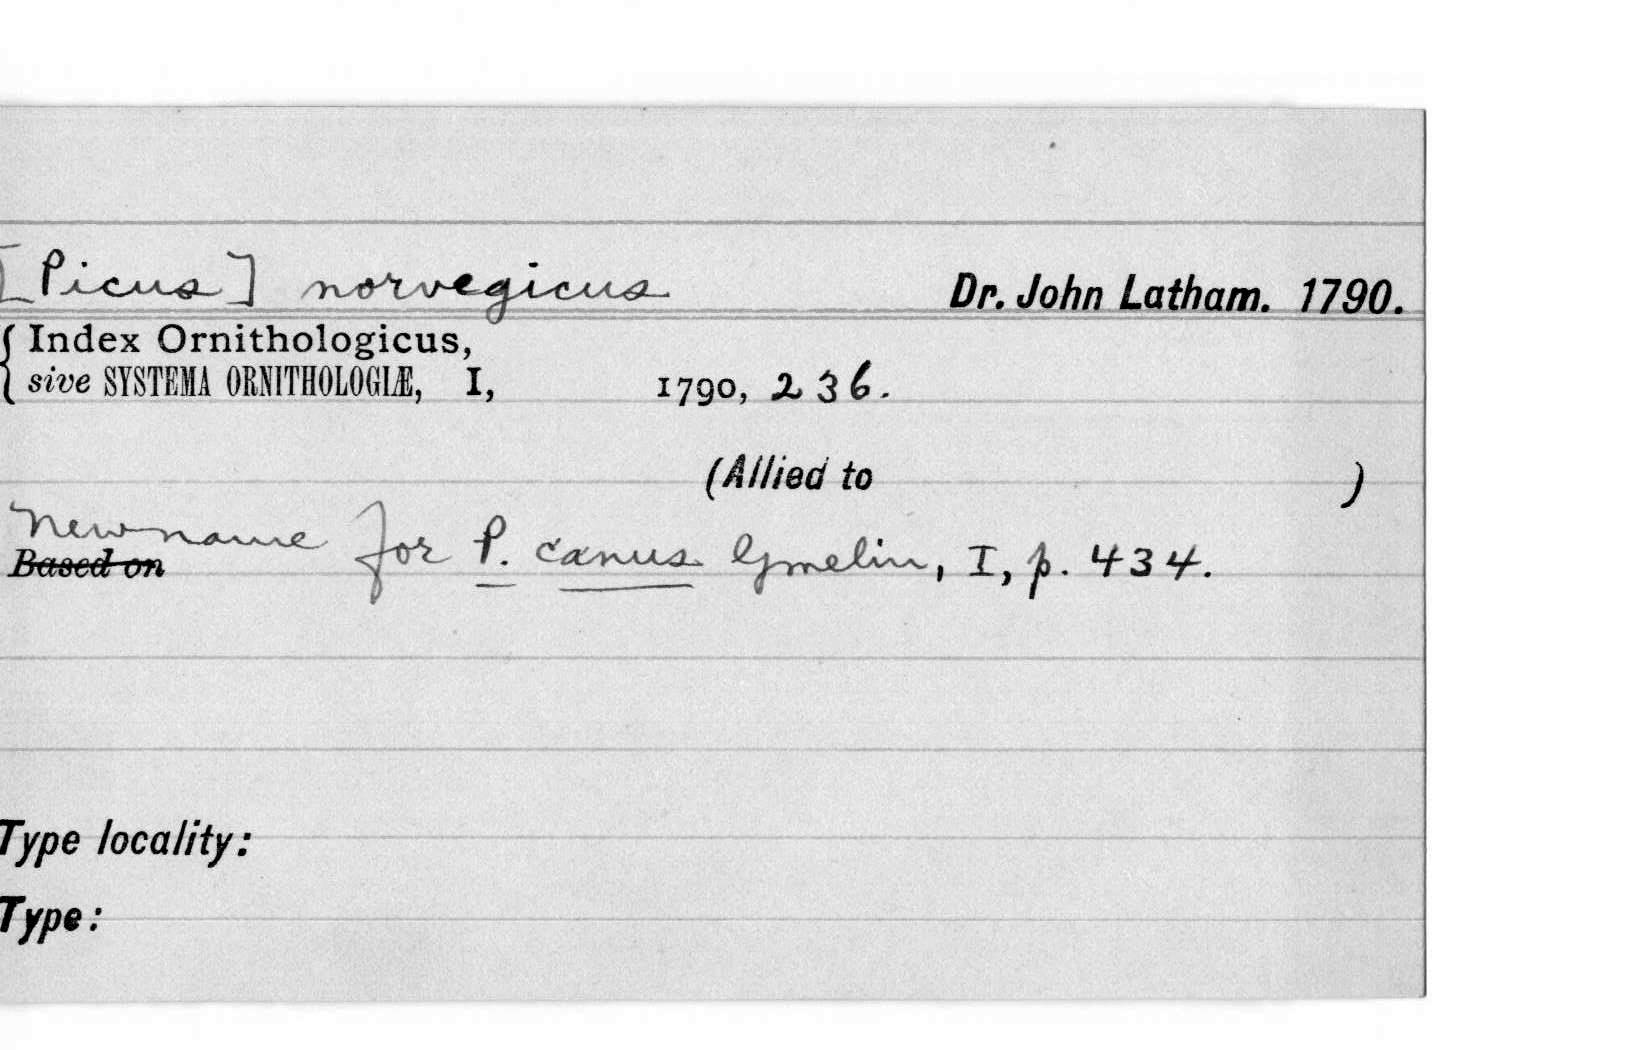 [Picus] norvegicus Dr. John Latham. 1790.
Index Ornithologicus,
sive SYSTEMA ORNITHOLOGIÆ, I, 1790, 236.
(Allied to )
New name for P. canus Gmelin, I, p. 434.
Based on
Type locality:
Type: